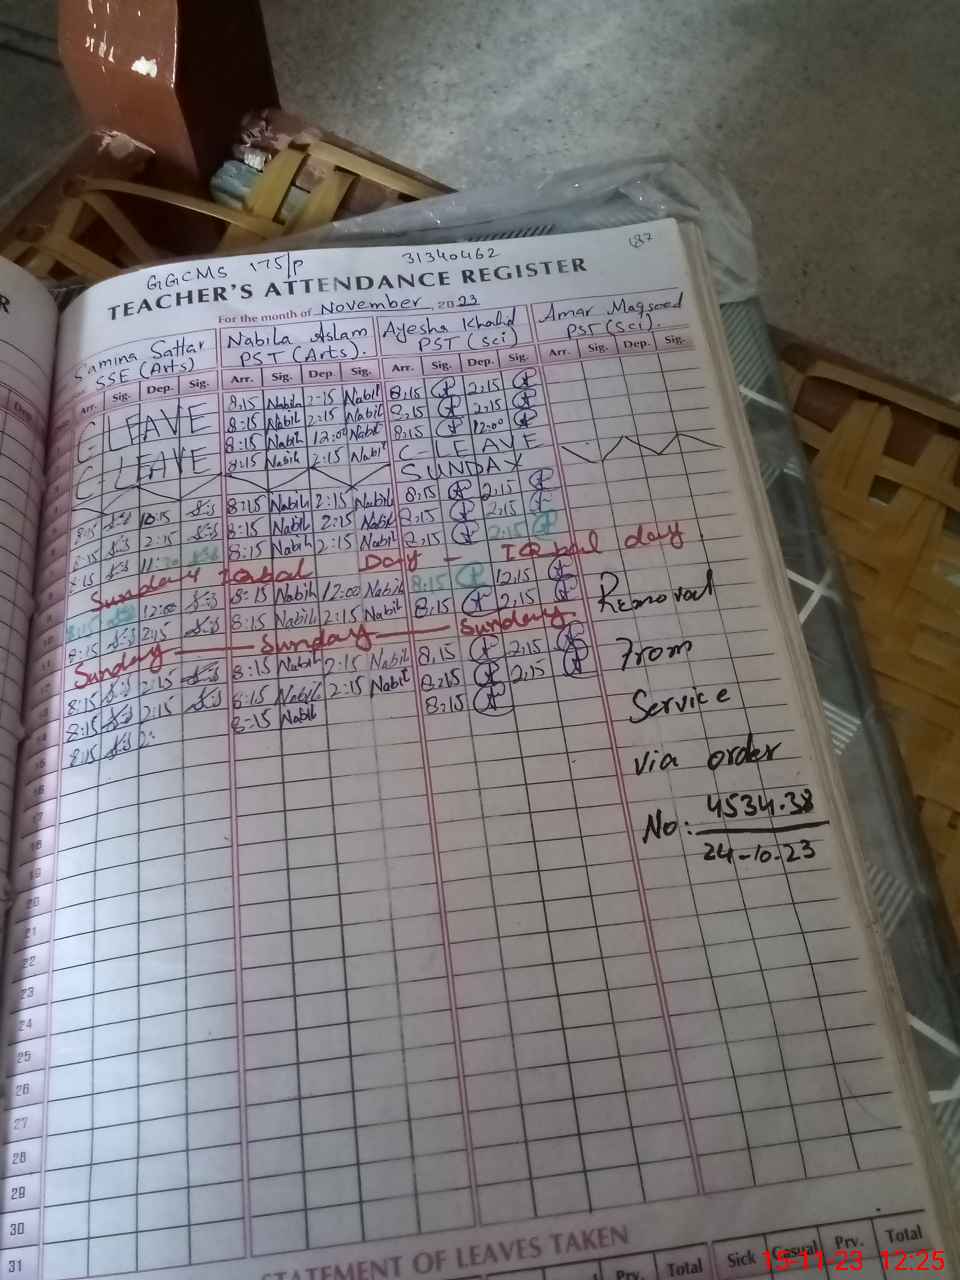 187
GGCMS 175/P 31340462
TEACHER'S ATTENDANCE REGISTER
For the month of November, 2023
Samina Sattar Nabila Aslam Ayesha Khalid Amar Maqsood
SSE (Arts) PST (Arts). PST (Sci) PST (Sci).
Arr. Sig. Dep. Sig. Arr. Sig. Dep. Sig. Arr. Sig. Dep. Sig. Arr. Sig. Dep. Sig.
C-LEAVE 8:15 Nabila 2:15 Nabil 8:15 2:15
8:15 Nabih 2:15 Nabil 8:15 2:15
8:15 Nabih 12:00 Nabil 8:15 12:00
C-LEAVE 8:15 Nabih 2:15 Nabil C-LEAVE
SUNDAY
8:15 10:15 8:15 Nabih 2:15 Nabil 8:15 2:15
8:15 2:15 8:15 Nabih 2:15 Nabil 8:15 2:15
8:15 8:15 Nabih 2:15 Nabil 8:15 2:15
Iqbal Day - IQbal day
8:15 12:00 8:15 Nabih 12:00 Nabih 8:15 12:15
8:15 2:15 8:15 Nabih 2:15 Nabil 8:15 2:15
Sunday Sunday Sunday
8:15 2:15 8:15 Nabih 2:15 Nabil 8:15 2:15
8:15 2:15 8:15 Nabil 2:15 Nabil 8:15 2:15
8:15 2: 8:15 Nabil 8:15
Removal
From
Service
via order
No: 4534-38
24-10-23
9
10
11
12
13
14
15
16
17
18
19
20
21
22
23
24
25
26
27
28
29
30
31
STATEMENT OF LEAVES TAKEN
Prv. Total Sick Casual Prv. Total
15-11-23 12:25